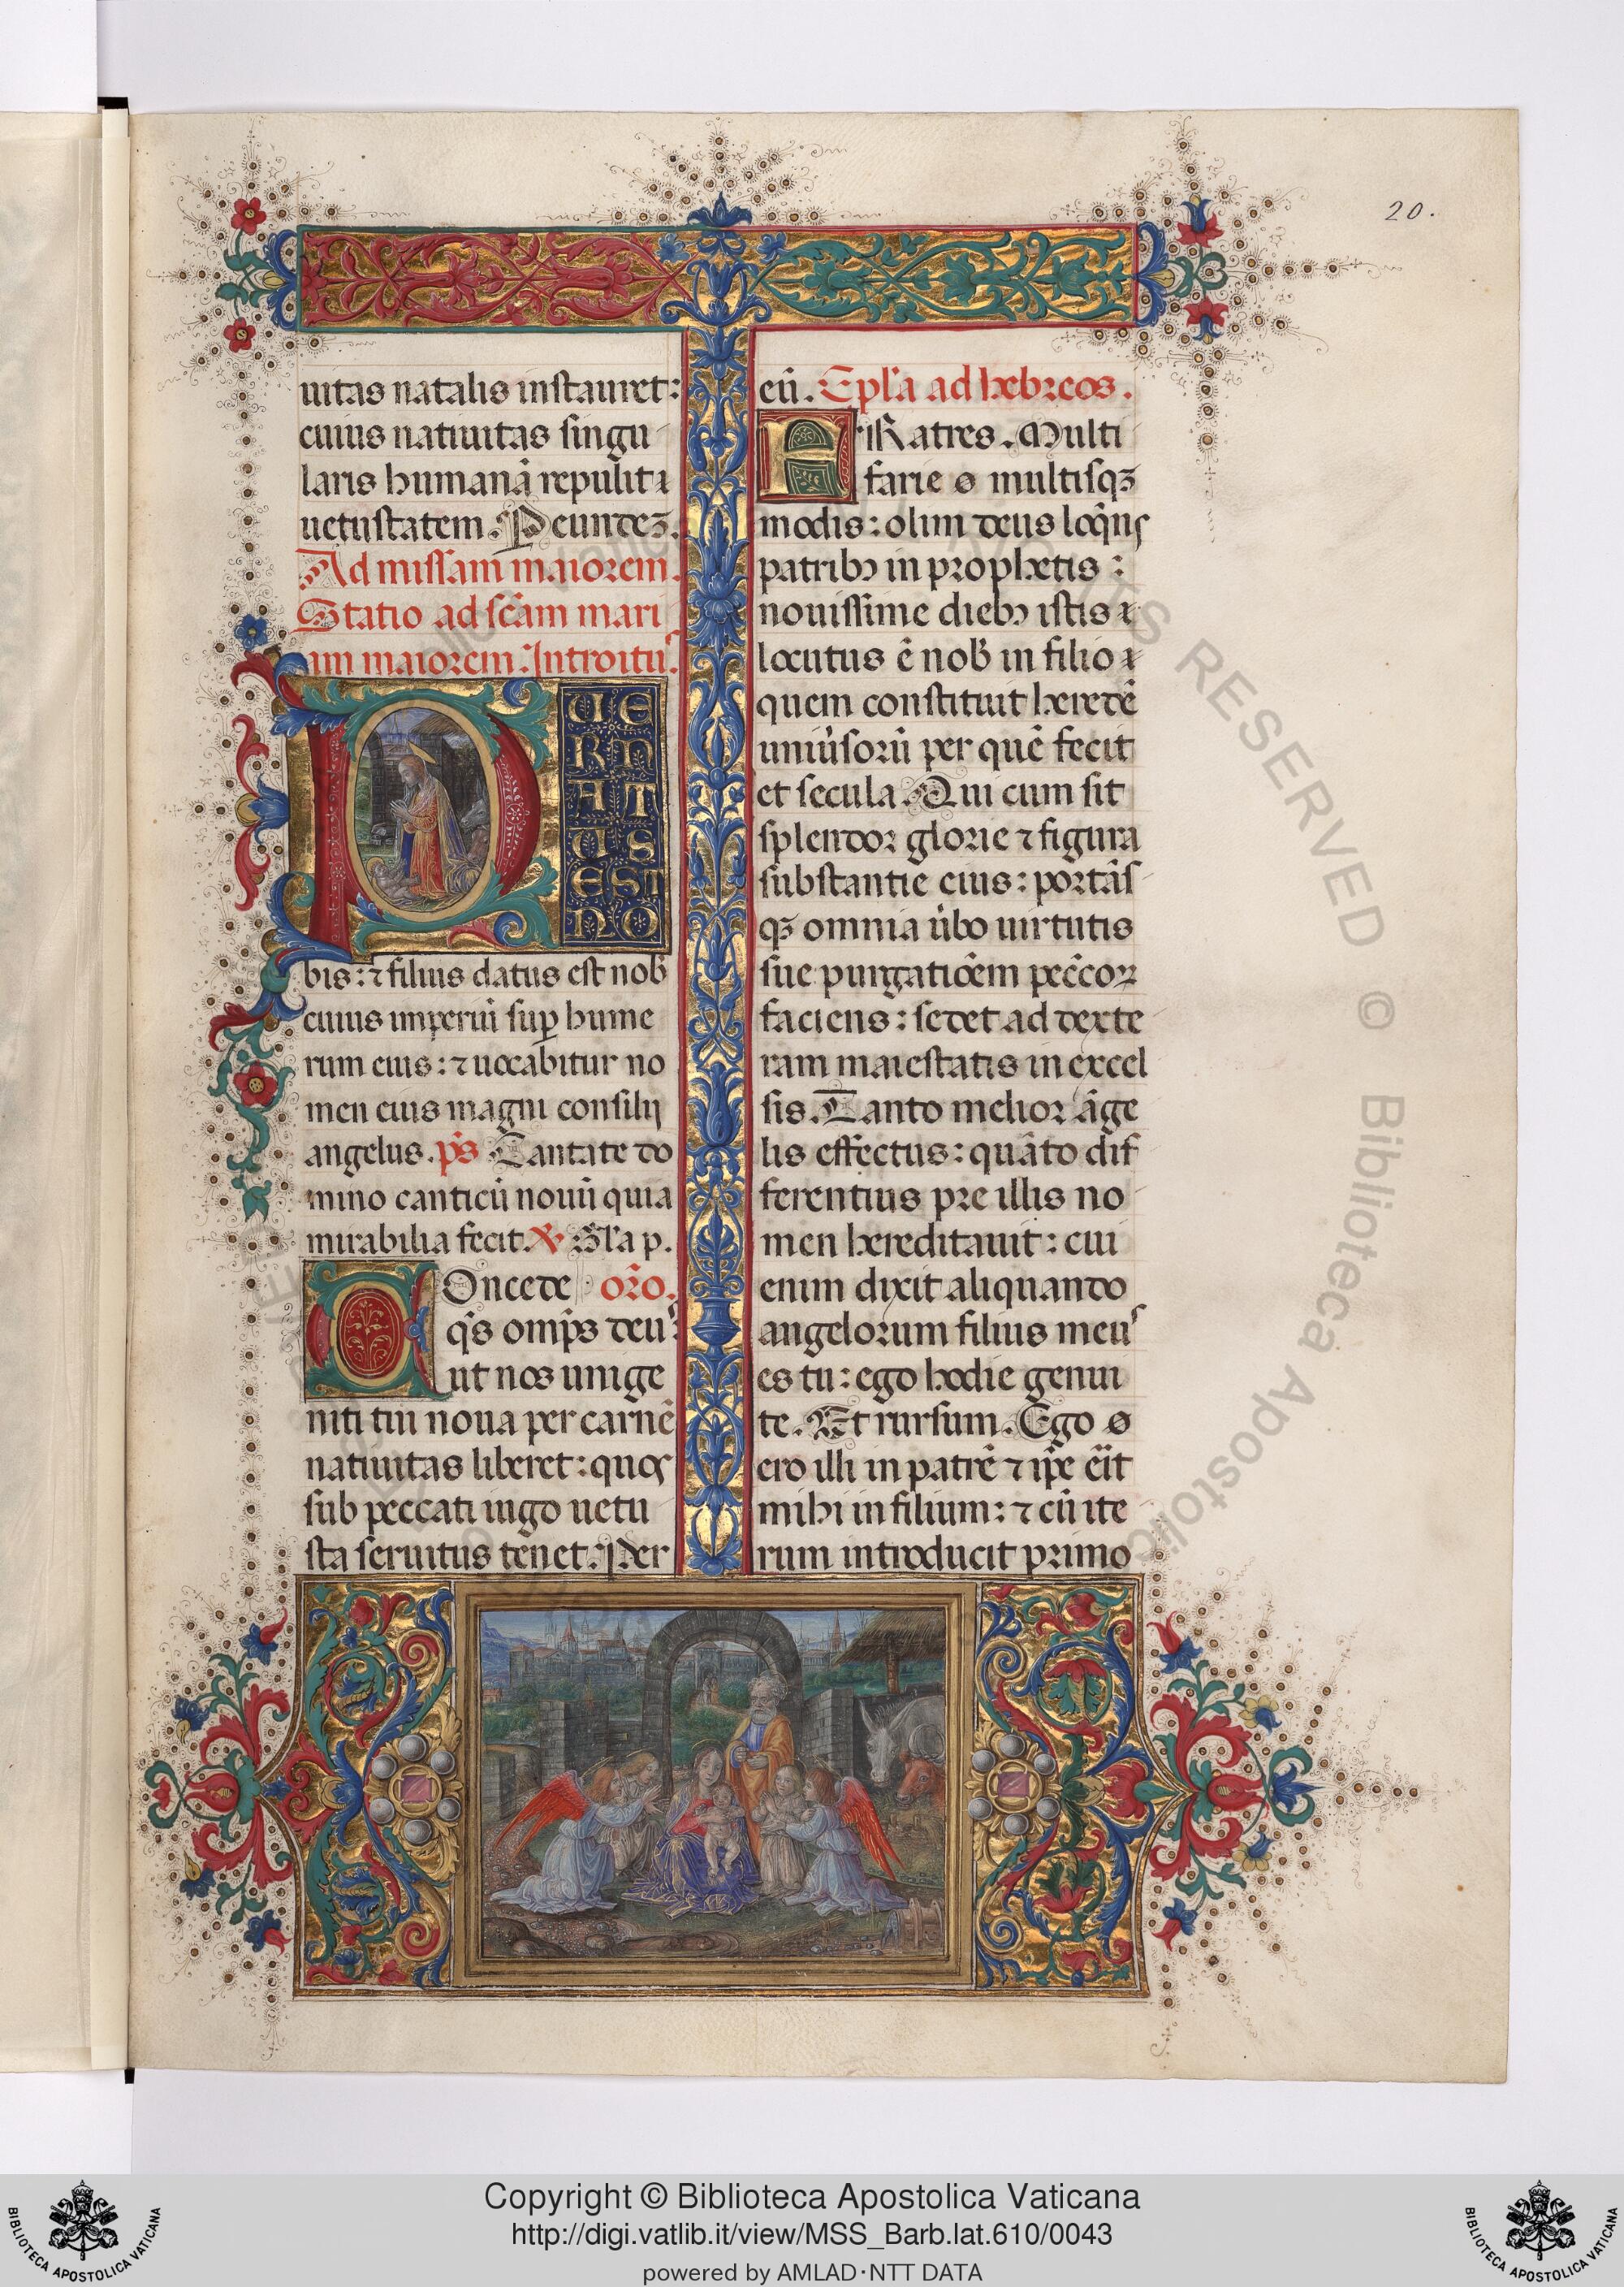 20.
uitas natalis instauret:
cuius natiuitas singu
laris humanā repulit ⁊
uetustatem. Per eundeꝫ.
Ad missam maiorem.
Statio ad scām mari
am maiorem. Introitus.
PUE
RN
AT
US
EST
NO
bis: ⁊ filius datus est nob̄
cuius imperiū suꝑ hume
rum eius: ⁊ uocabitur no
men eius magni consilij
angelus. p̄s Cantate do
mino canticū nouū quia
mirabilia fecit. ℣ Gl̄a p.
Concede or̄o.
q̄s omp̄s deus:
ut nos unige
niti tui noua per carnē
natiuitas liberet: quos
sub peccati iugo uetu
sta seruitus tenet. Per
eū. Epl̄a ad hebreos.
FRatres. Multi
farie ⁊ multisqꝫ
modis: olim deus loq̄ns
patribꝫ in prophetis:
nouissime diebꝫ istis ⁊
locutus ē nob̄ in filio ⁊
quem constituit heredē
uniūsorū per quē fecit
et secula. Qui cum sit
splendor glorie ⁊ figura
substantie eius: portās
qꝫ omnia ūbo uirtutis
sue purgatiōem pec̄corꝝ
faciens: sedet ad dexte
ram maiestatis in excel
sis. Tanto melior āge
lis effectus: quāto dif
ferentius pre illis no
men hereditauit: cui
enim dixit aliquando
angelorum filius meus
es tu: ego hodie genui
te. Et rursum. Ego
ero illi in patrē ⁊ ip̄e er̄it
mihi in filium: ⁊ cū ite
rum introducit primo
RIGHTS RESERVED © Biblioteca Apostolica
Copyright © Biblioteca Apostolica Vaticana
http://digi.vatlib.it/view/MSS_Barb.lat.610/0043
powered by AMLAD·NTT DATA
BIBLIOTECA APOSTOLICA VATICANA
BIBLIOTECA APOSTOLICA VATICANA